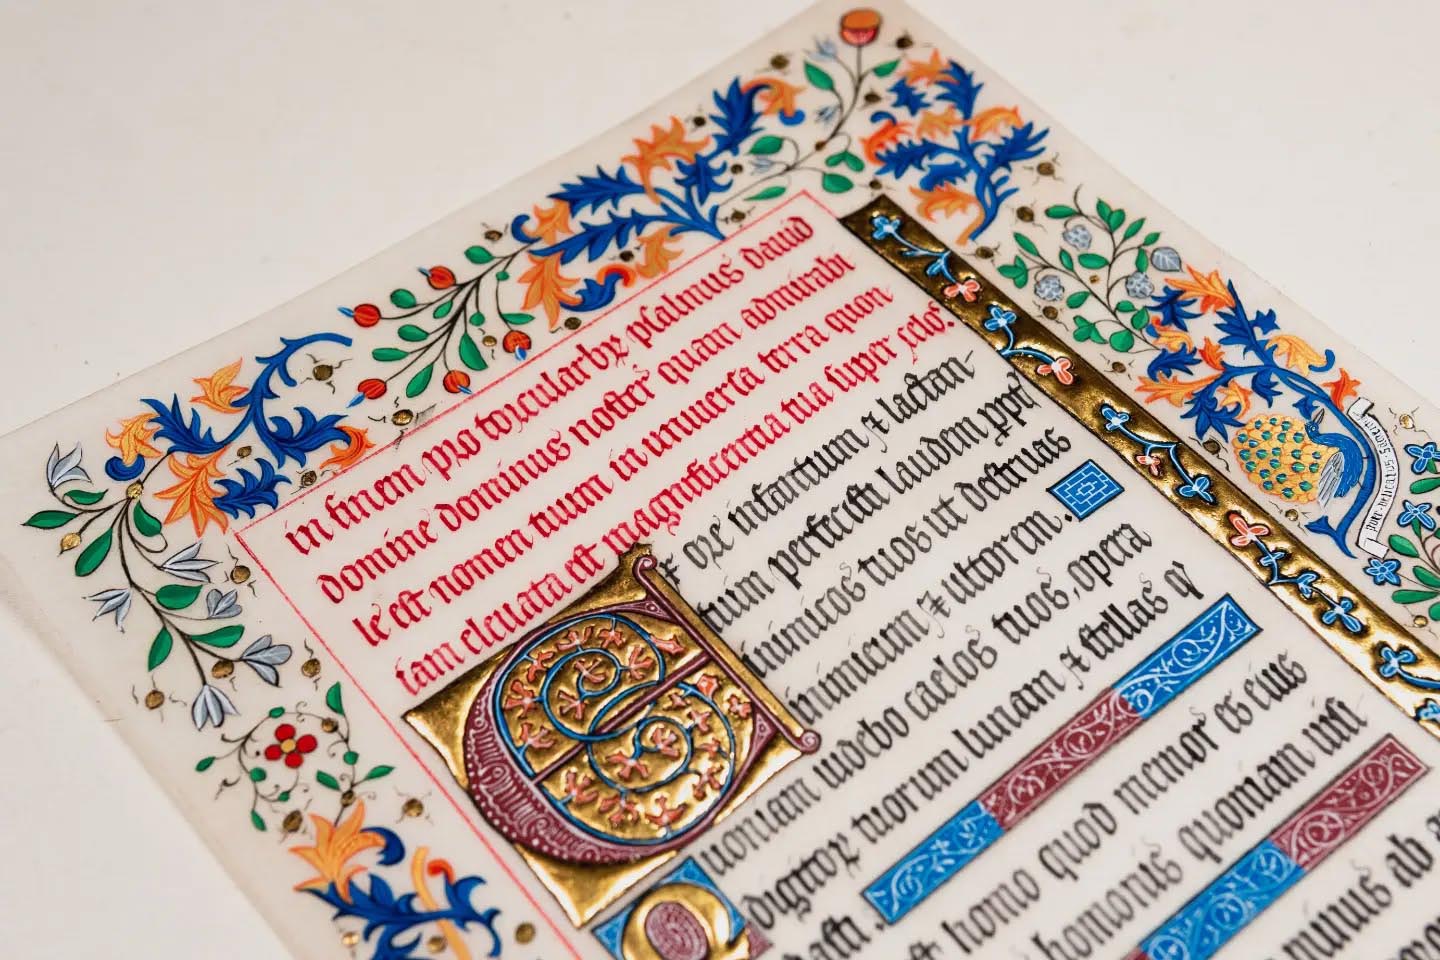 in finem pro torcularibꝫ psalmus david
domine dominus noster quam admirabi
le est nomen tuum in universa terra quon
iam elevata est magnificentia tua super celos.
Ex ore infantium ⁊ lactan-
tium perfecisti laudem ppt
inimicos tuos ut destruas
inimicum ⁊ ultorem.
Quoniam videbo caelos tuos, opera
digitoꝝ tuorum lunam ⁊ stellas q
dasti.
st homo quod memor es eius
homonis quoniam visi
minuis ab